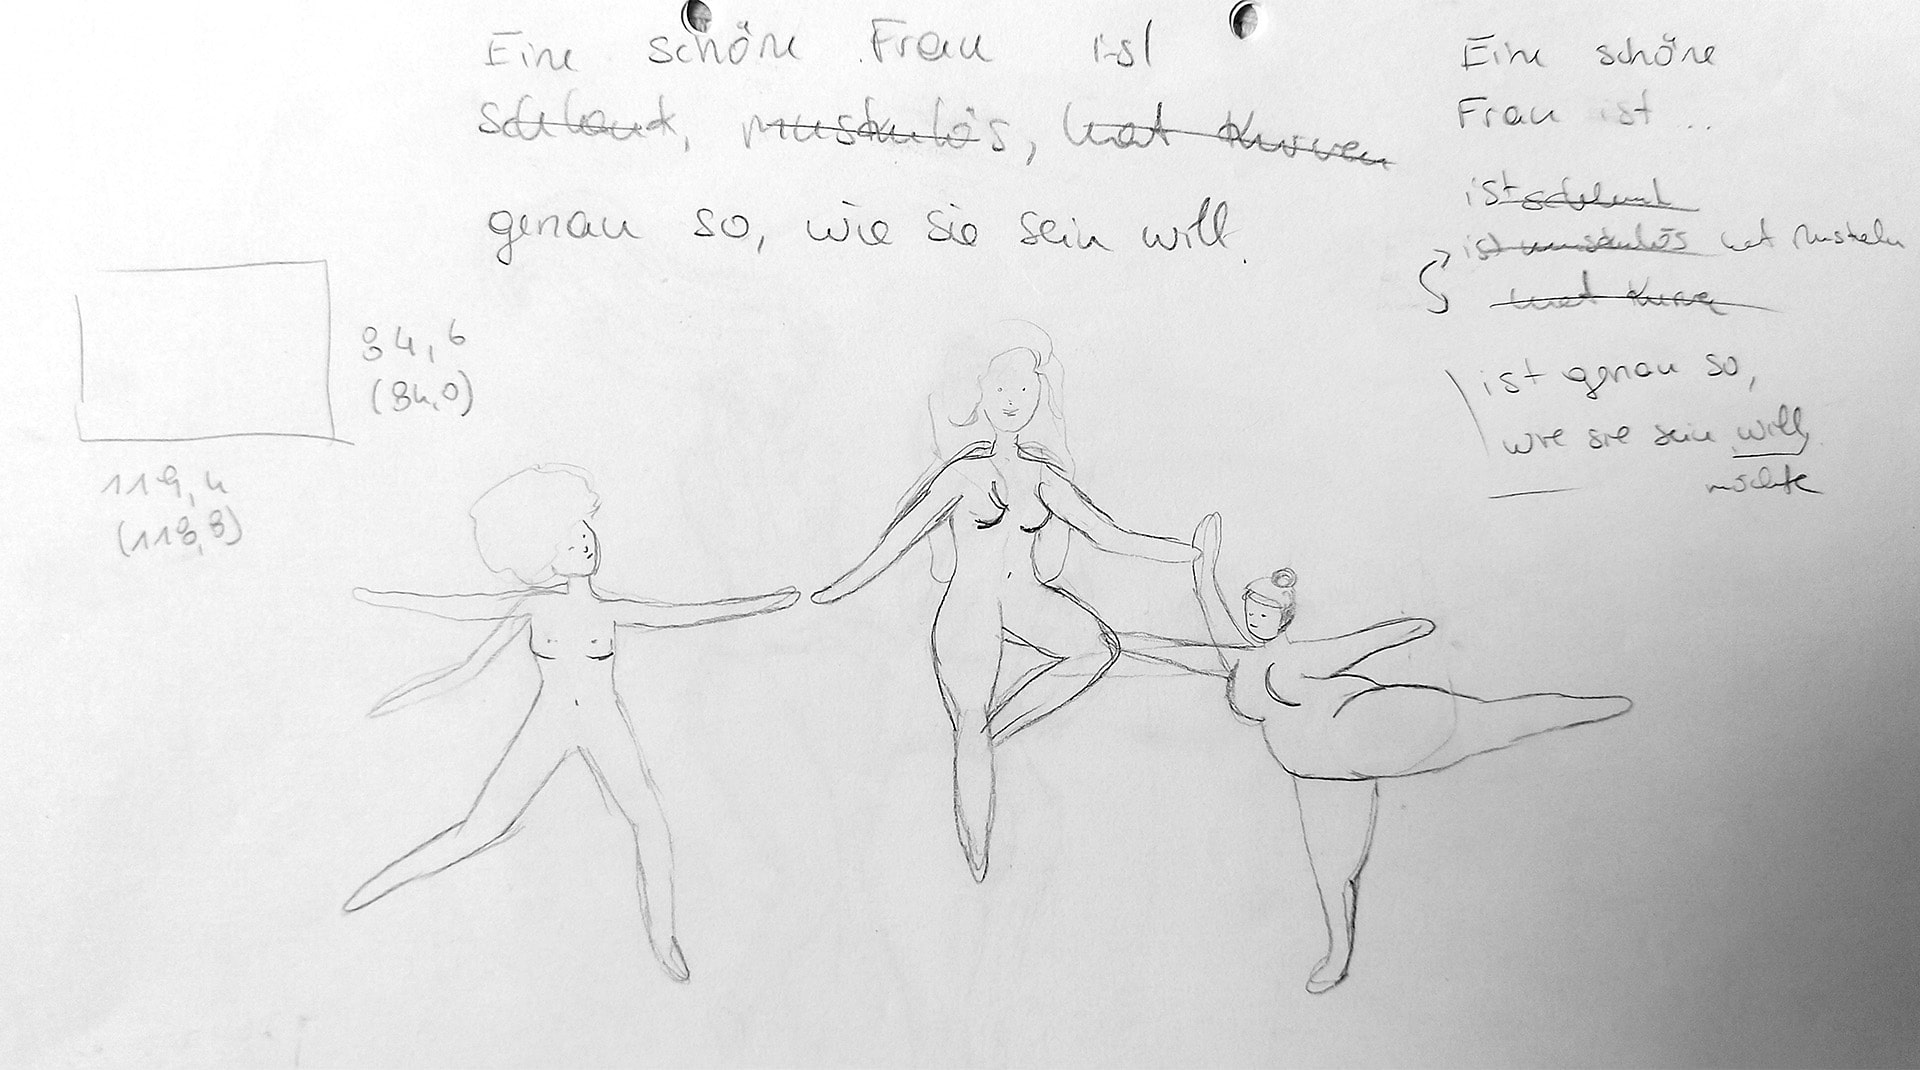 Eine schöne Frau ist
schlank, muskulös, hat Kurven
genau so, wie sie sein will.
Eine schöne
Frau ist ..
ist schlank
ist muskulös hat Muskeln
hat Kurve
ist genau so,
wie sie sein will,
möchte
84,6
(84,0)
119,4
(118,8)